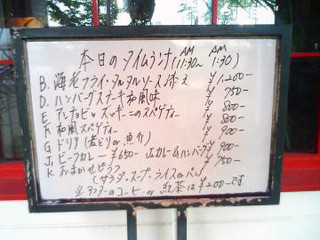 本日のタイムランチ (AM 11:30~ AM 1:30)
B. 海老フライ・タルタルソース添え ¥1.200-
D. ハンバーグステーキ和風味 ¥750-
E. アンチョビとズッキーニのスパゲティー ¥800-
F. 和風スパゲティー ¥800-
G ドリア(若どり or 魚介) ¥900-
J. ビーフカレー ¥650- ハンバーグ ¥900-
K おまかせピラフ ¥750-
(サラダ、スープ、ライス or パン)
※ のコーヒー or 紅茶は¥200-です。